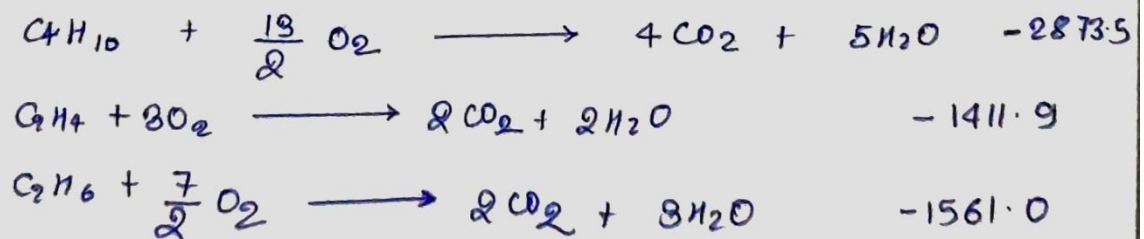 C4H10 + 13/2 O2 ⟶ 4CO2 + 5H2O -2873.5
C2H4 + 3O2 ⟶ 2CO2 + 2H2O -1411.9
C2H6 + 7/2 O2 ⟶ 2CO2 + 3H2O -1561.0